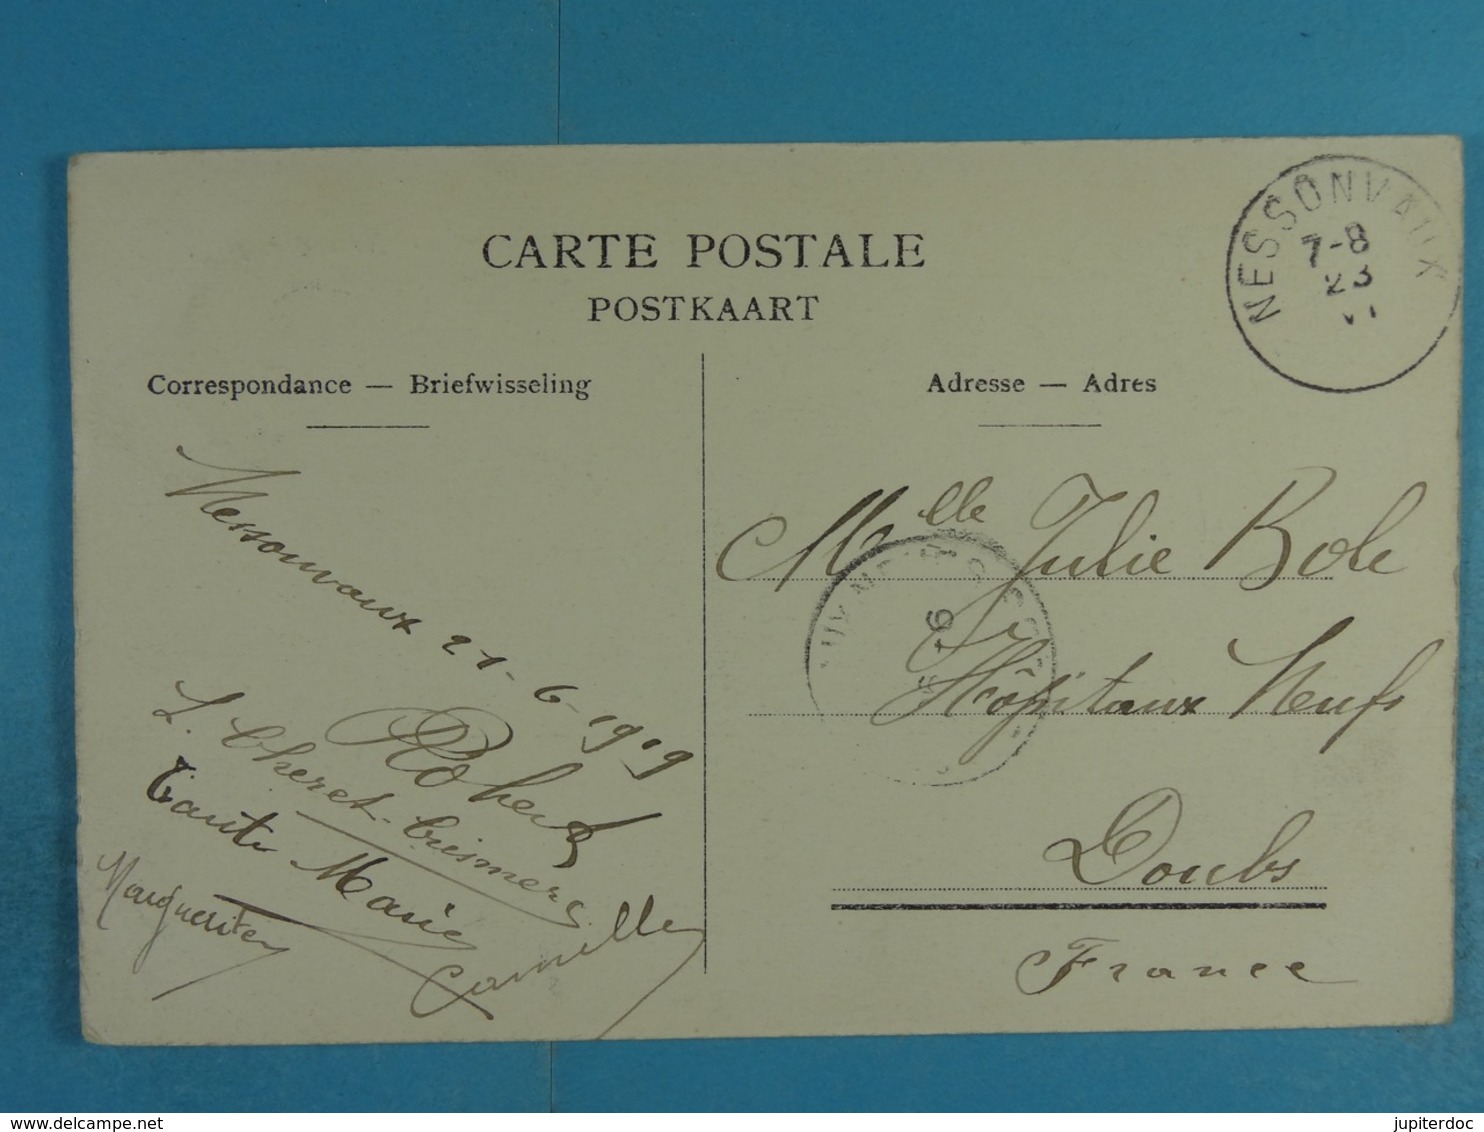 CARTE POSTALE
POSTKAART
Correspondance — Briefwisseling
Adresse — Adres
NESSONVAUX
7-8
23
VI
Nessonvaux 21-6-1909
Robert
L. Cheret-Crismer
Tante Marie
Marguerite
Camille
Melle Julie Bole
Hôpitaux Neufs
Doubs
France
www.delcampe.net
jupiterdoc